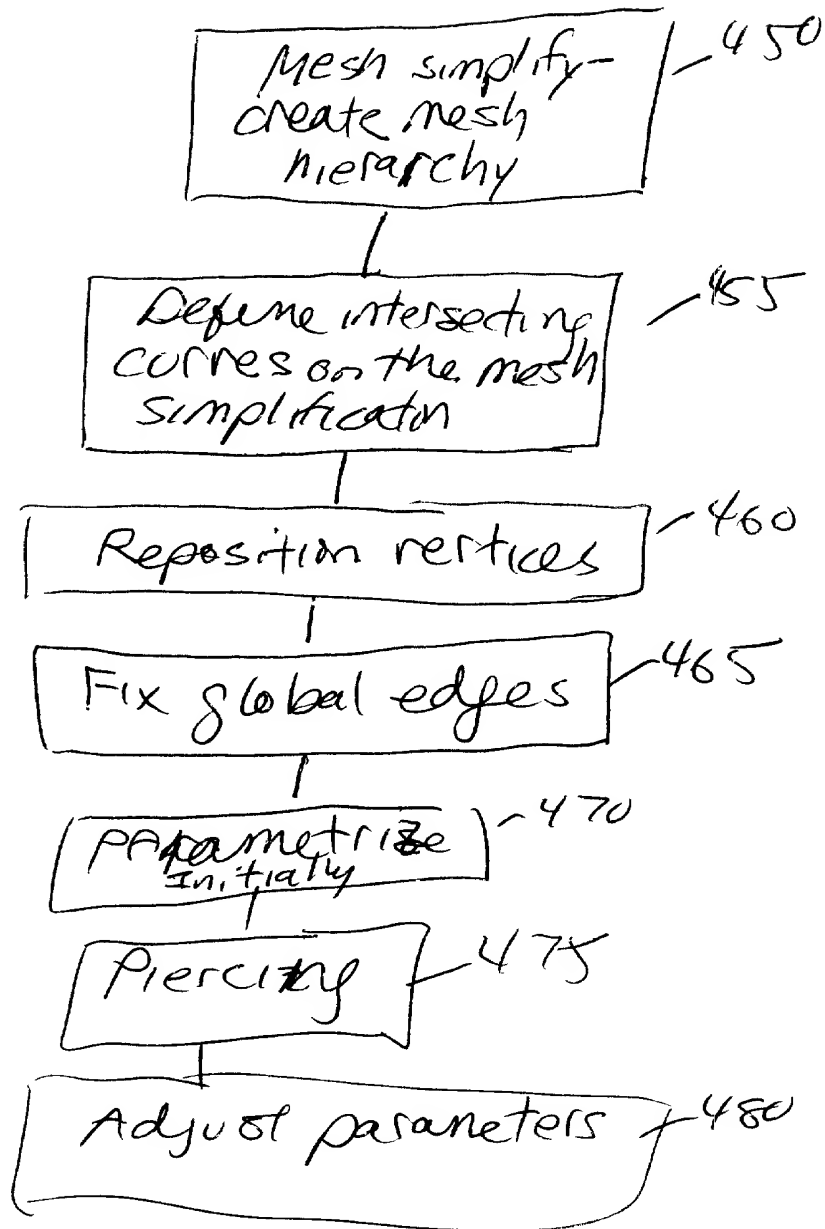 Mesh simplify-
create mesh
hierarchy
450
Define intersecting
curves on the mesh
simplification
455
Reposition vertices
460
Fix global edges
465
Parametrize
Initially
470
Piercing
475
Adjust parameters
480